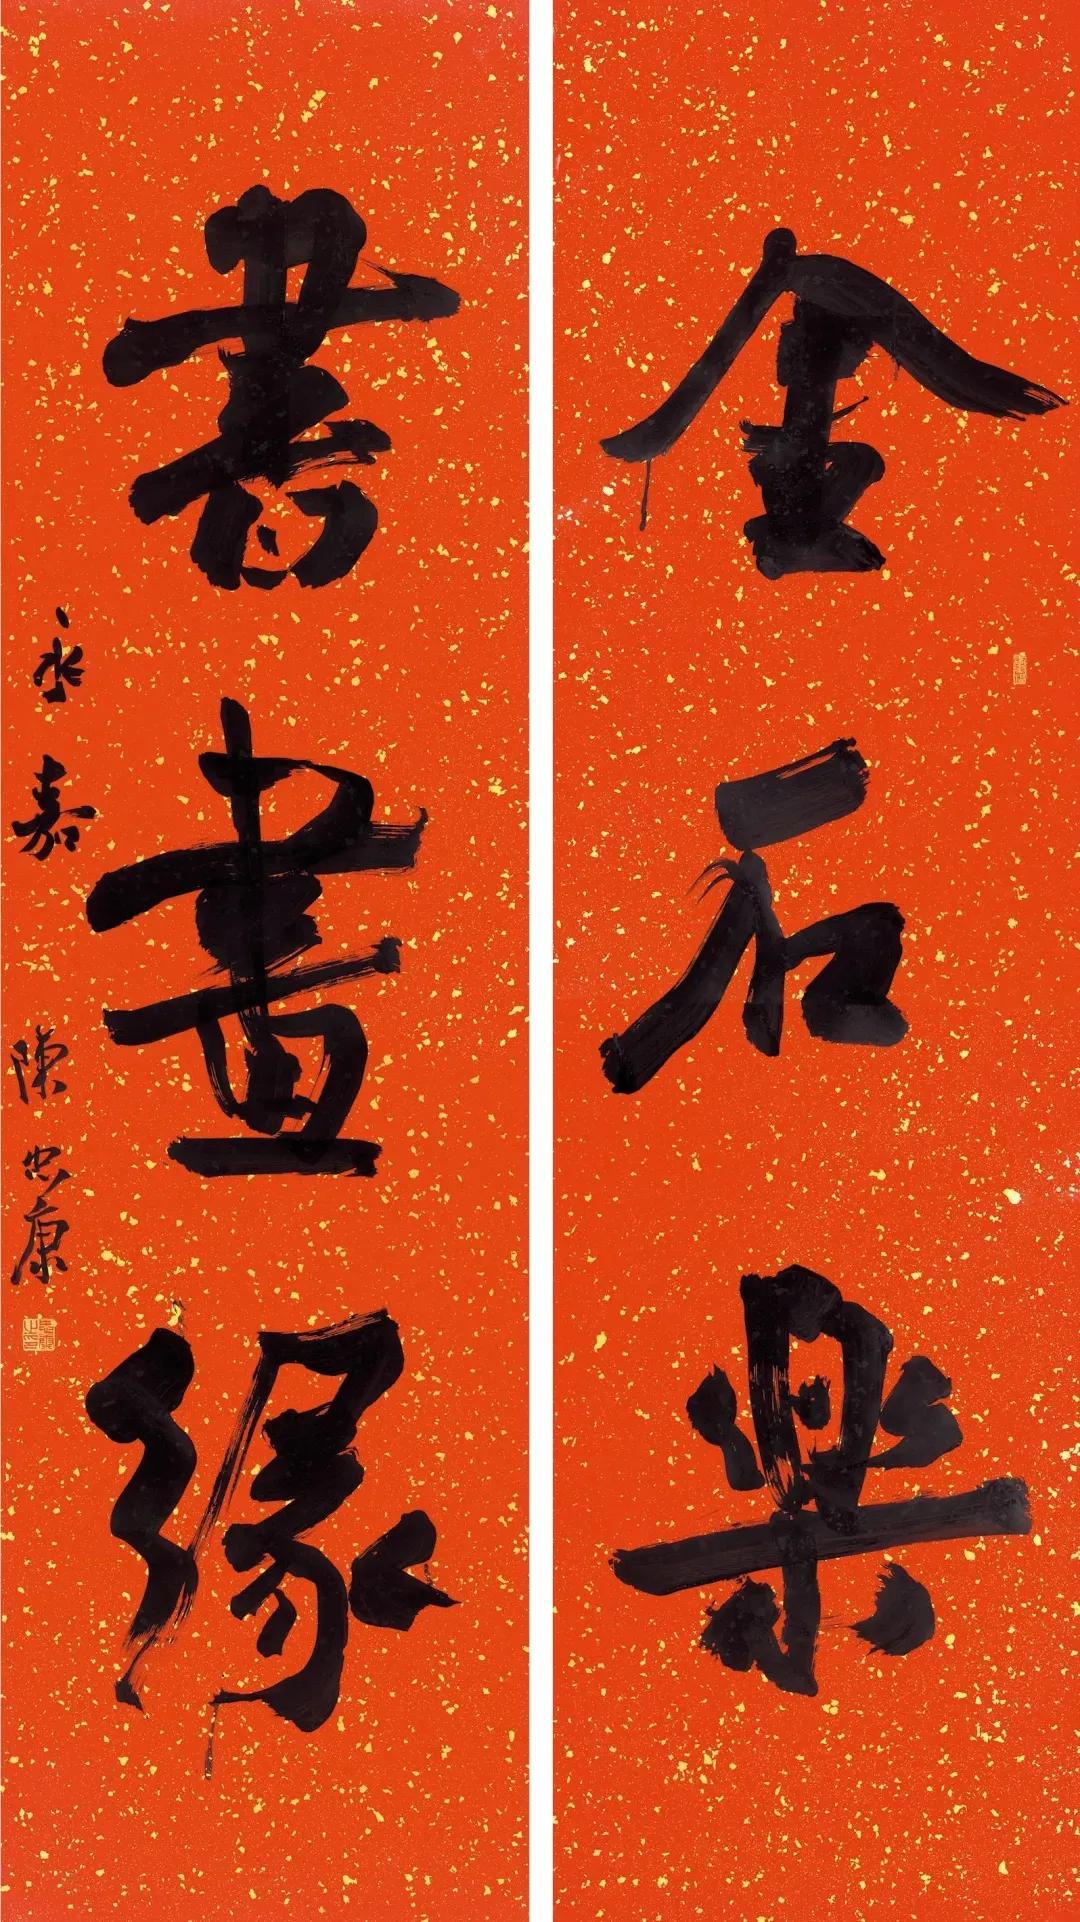 金石樂
書畫緣
永嘉陳忠康